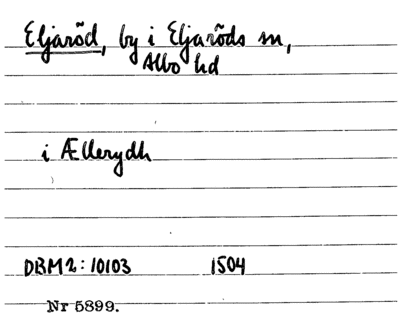 Eljaröd, by i Eljaröds sn,
Albo hd
i Ællerydh
DBM2: 10103 1504
Nr 5899.